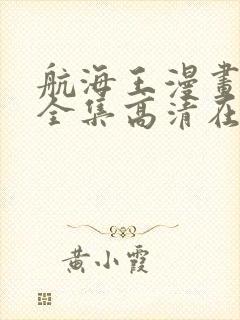 航海王漫畫
全集高清在
黄小霞